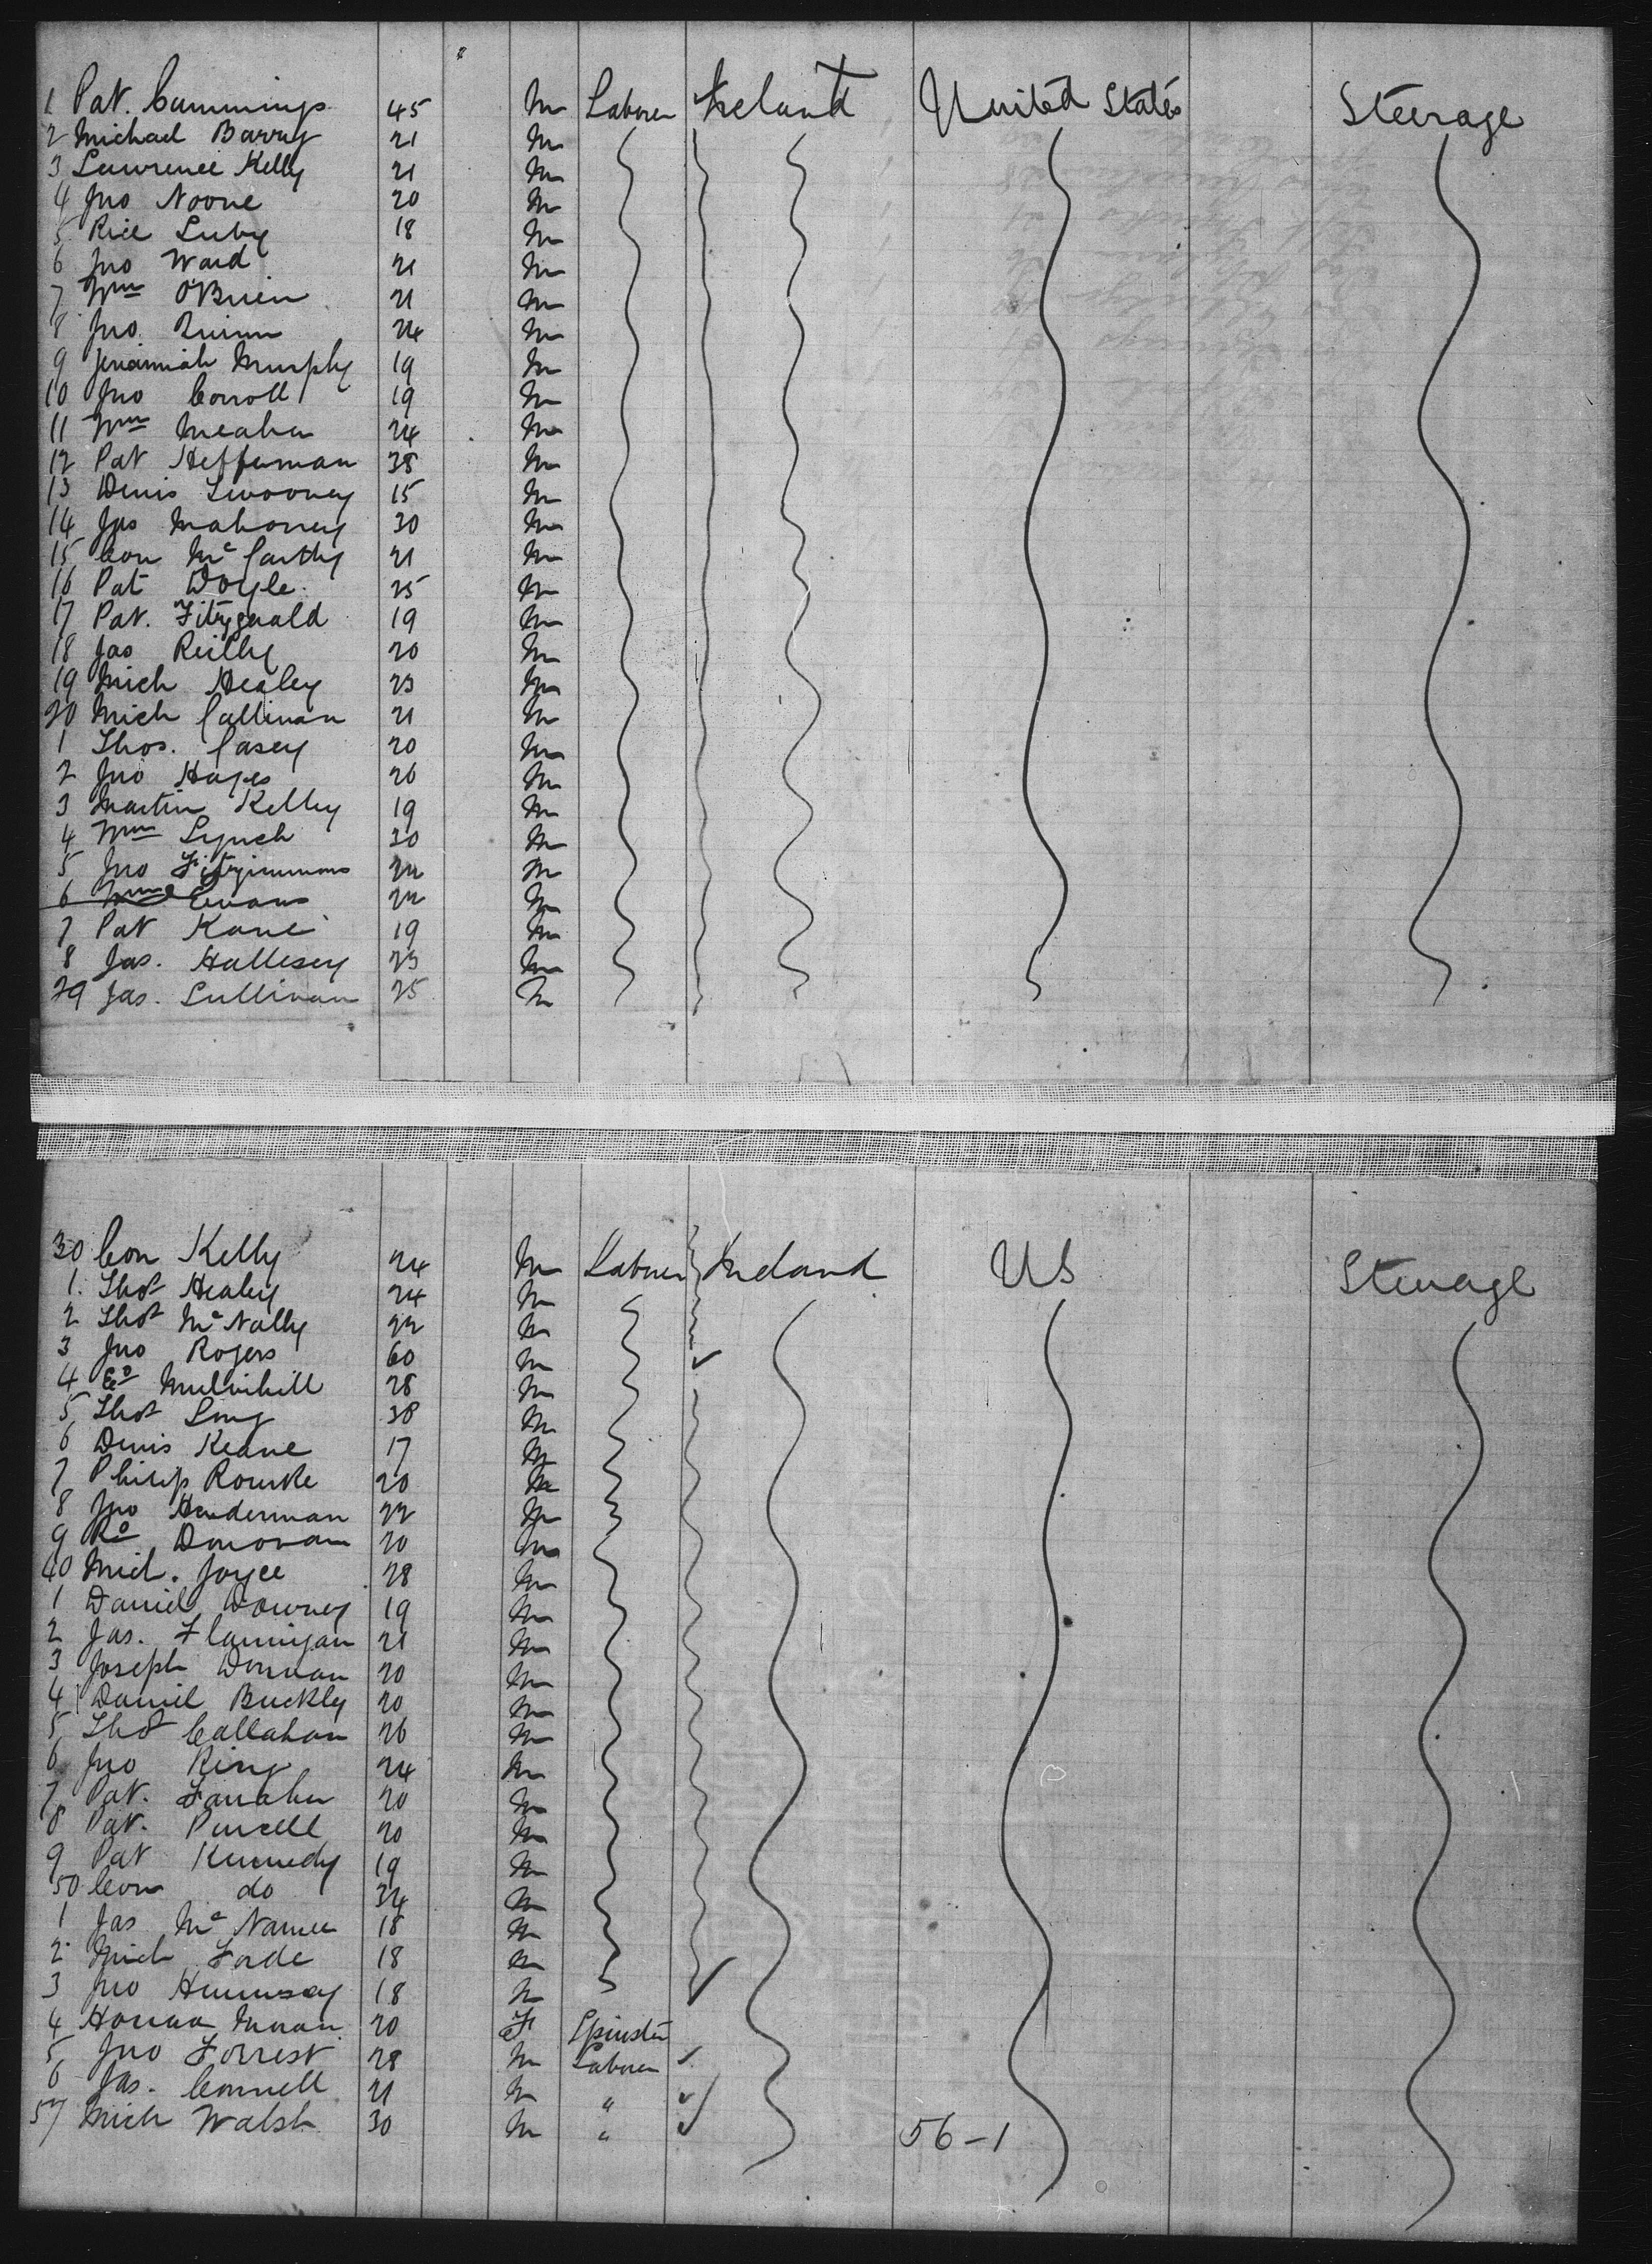 1 Pat. Cummings 45 M Laborer Ireland United States Steerage
2 Michael Barry 21 M
3 Lawrence Kelly 21 M
4 Jno Noone 20 M
5 Rice Luby 18 M
6 Jno Ward 21 M
7 Wm O'Brien 21 M
8 Jno. Quinn 24 M
9 Jeramiah Murphy 19 M
10 Jno Corroll 19 M
11 Wm Meaher 24 M
12 Pat Heffernan 38 M
13 Denis 15 M
14 Jas Mahoney 30 M
15 Con McCarthy 21 M
16 Pat Doyle. 25 M
17 Pat. Fitzgerald 19 M
18 Jas Reilly 20 M
19 Mich Healey 23 M
20 Mich Callinan 21 M
1 Thos. Casey 20 M
2 Jno Hayes 26 M
3 Martin Kelley 19 M
4 Wm Lynch 30 M
5 Jno Fitzsimmons 22 M
6 Evans 22 M
7 Pat Kane 19 M
8 Jas. Hallesey 23 M
29 Jas. Sullivan 25 M
30 Con Kelly 24 M Laborer Ireland US Steerage
1. Thos Healey 24 M
2 Thos McNally 22 M
3 Jno Rogers 60 M
4 Ed Mulvihill 28 M
5 Thos Long 38 M
6 Denis Keane 17 M
7 Philip Rourke 20 M
8 Jno Henderman 22 M
9 Rd Donovan 20 M
40 Mich. Joyce 28 M
1 Daniel Downey 19 M
2 Jas. Flannigan 21 M
3 Joseph 20 M
4 Daniel Buckly 20 M
5 Thos Callahan 26 M
6 Jno King 24 M
7 Pat. 20 M
8 Pat. Purcell 20 M
9 Pat Kennedy 19 M
50 Con do 34 M
1 Jas McNamee 18 M
2 Mich Forde 18 M
3 Jno Hennesey 18 M
4 Honna 20 F Spinster
5 Jno Forrest 28 M Laborer
6 Jas. Connell 21 M "
57 Mich Walsh 30 M " 56-1